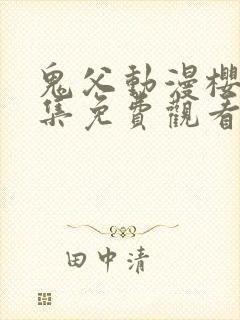 鬼父動漫櫻
集免費觀看
田中清